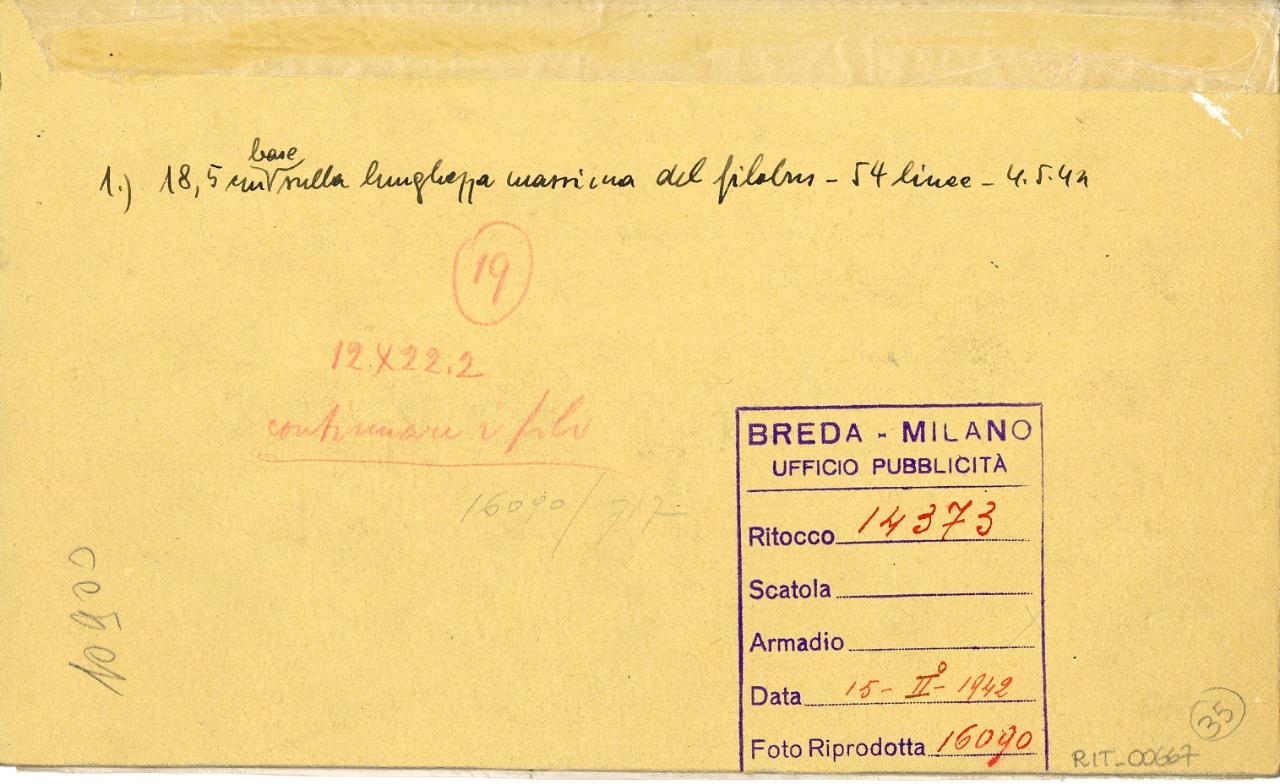 1.) 18,5 cm base sulla lunghezza massima del filobus - 54 linee - 4.5.42
19
12X22.2
continuare i fili
16090/717
10900
BREDA - MILANO
UFFICIO PUBBLICITÀ
Ritocco 14373
Scatola
Armadio
Data 15 - II° - 1942
Foto Riprodotta 16090
35
RIT_00667